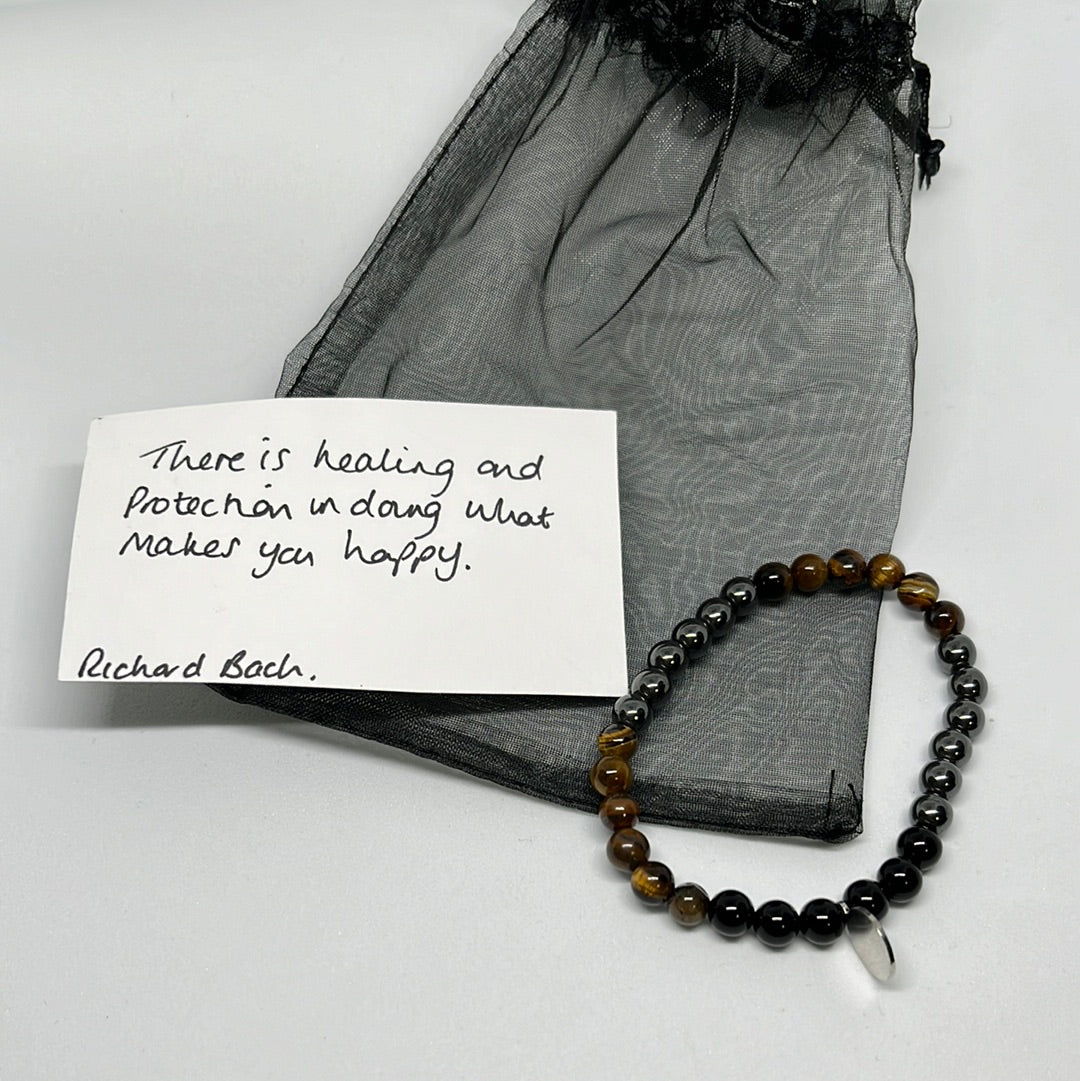 There is healing and
Protection in doing what
Makes you happy.
Richard Bach.